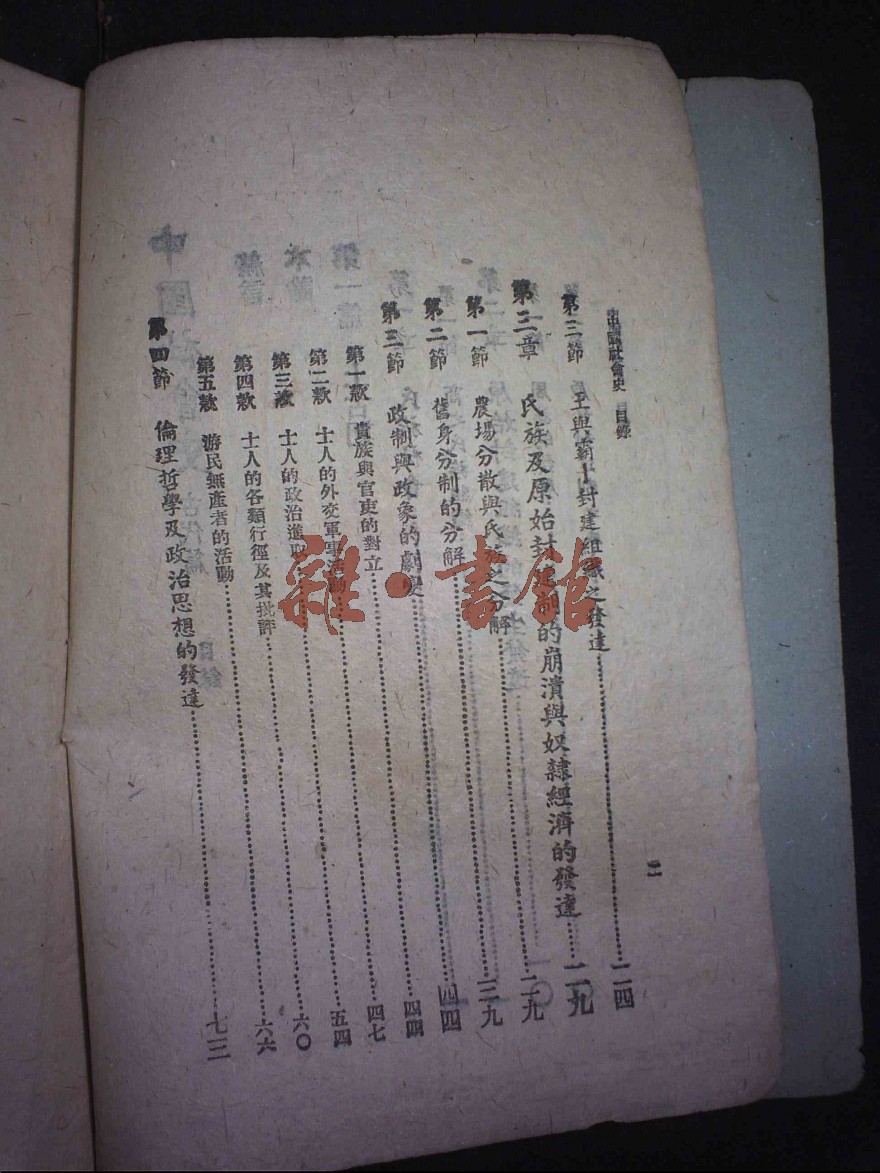 中國社會史 目錄 二
第三節 王與霸—封建組織之發達……二四
第三章 氏族及原始封建制的崩潰與奴隸經濟的發達……二九
第一節 農場分散與氏族之分解……二九
第二節 舊身分制的分解……三九
第三節 政制與政象的劇變……四四
第一款 貴族與官吏的對立……四四
第二款 士人的外交軍事活動……四七
第三款 士人的政治進取……五四
第四款 士人的各類行徑及其批評……六〇
第五款 游民無產者的活動……六六
第四節 倫理哲學及政治思想的發達……七三
雜·書館